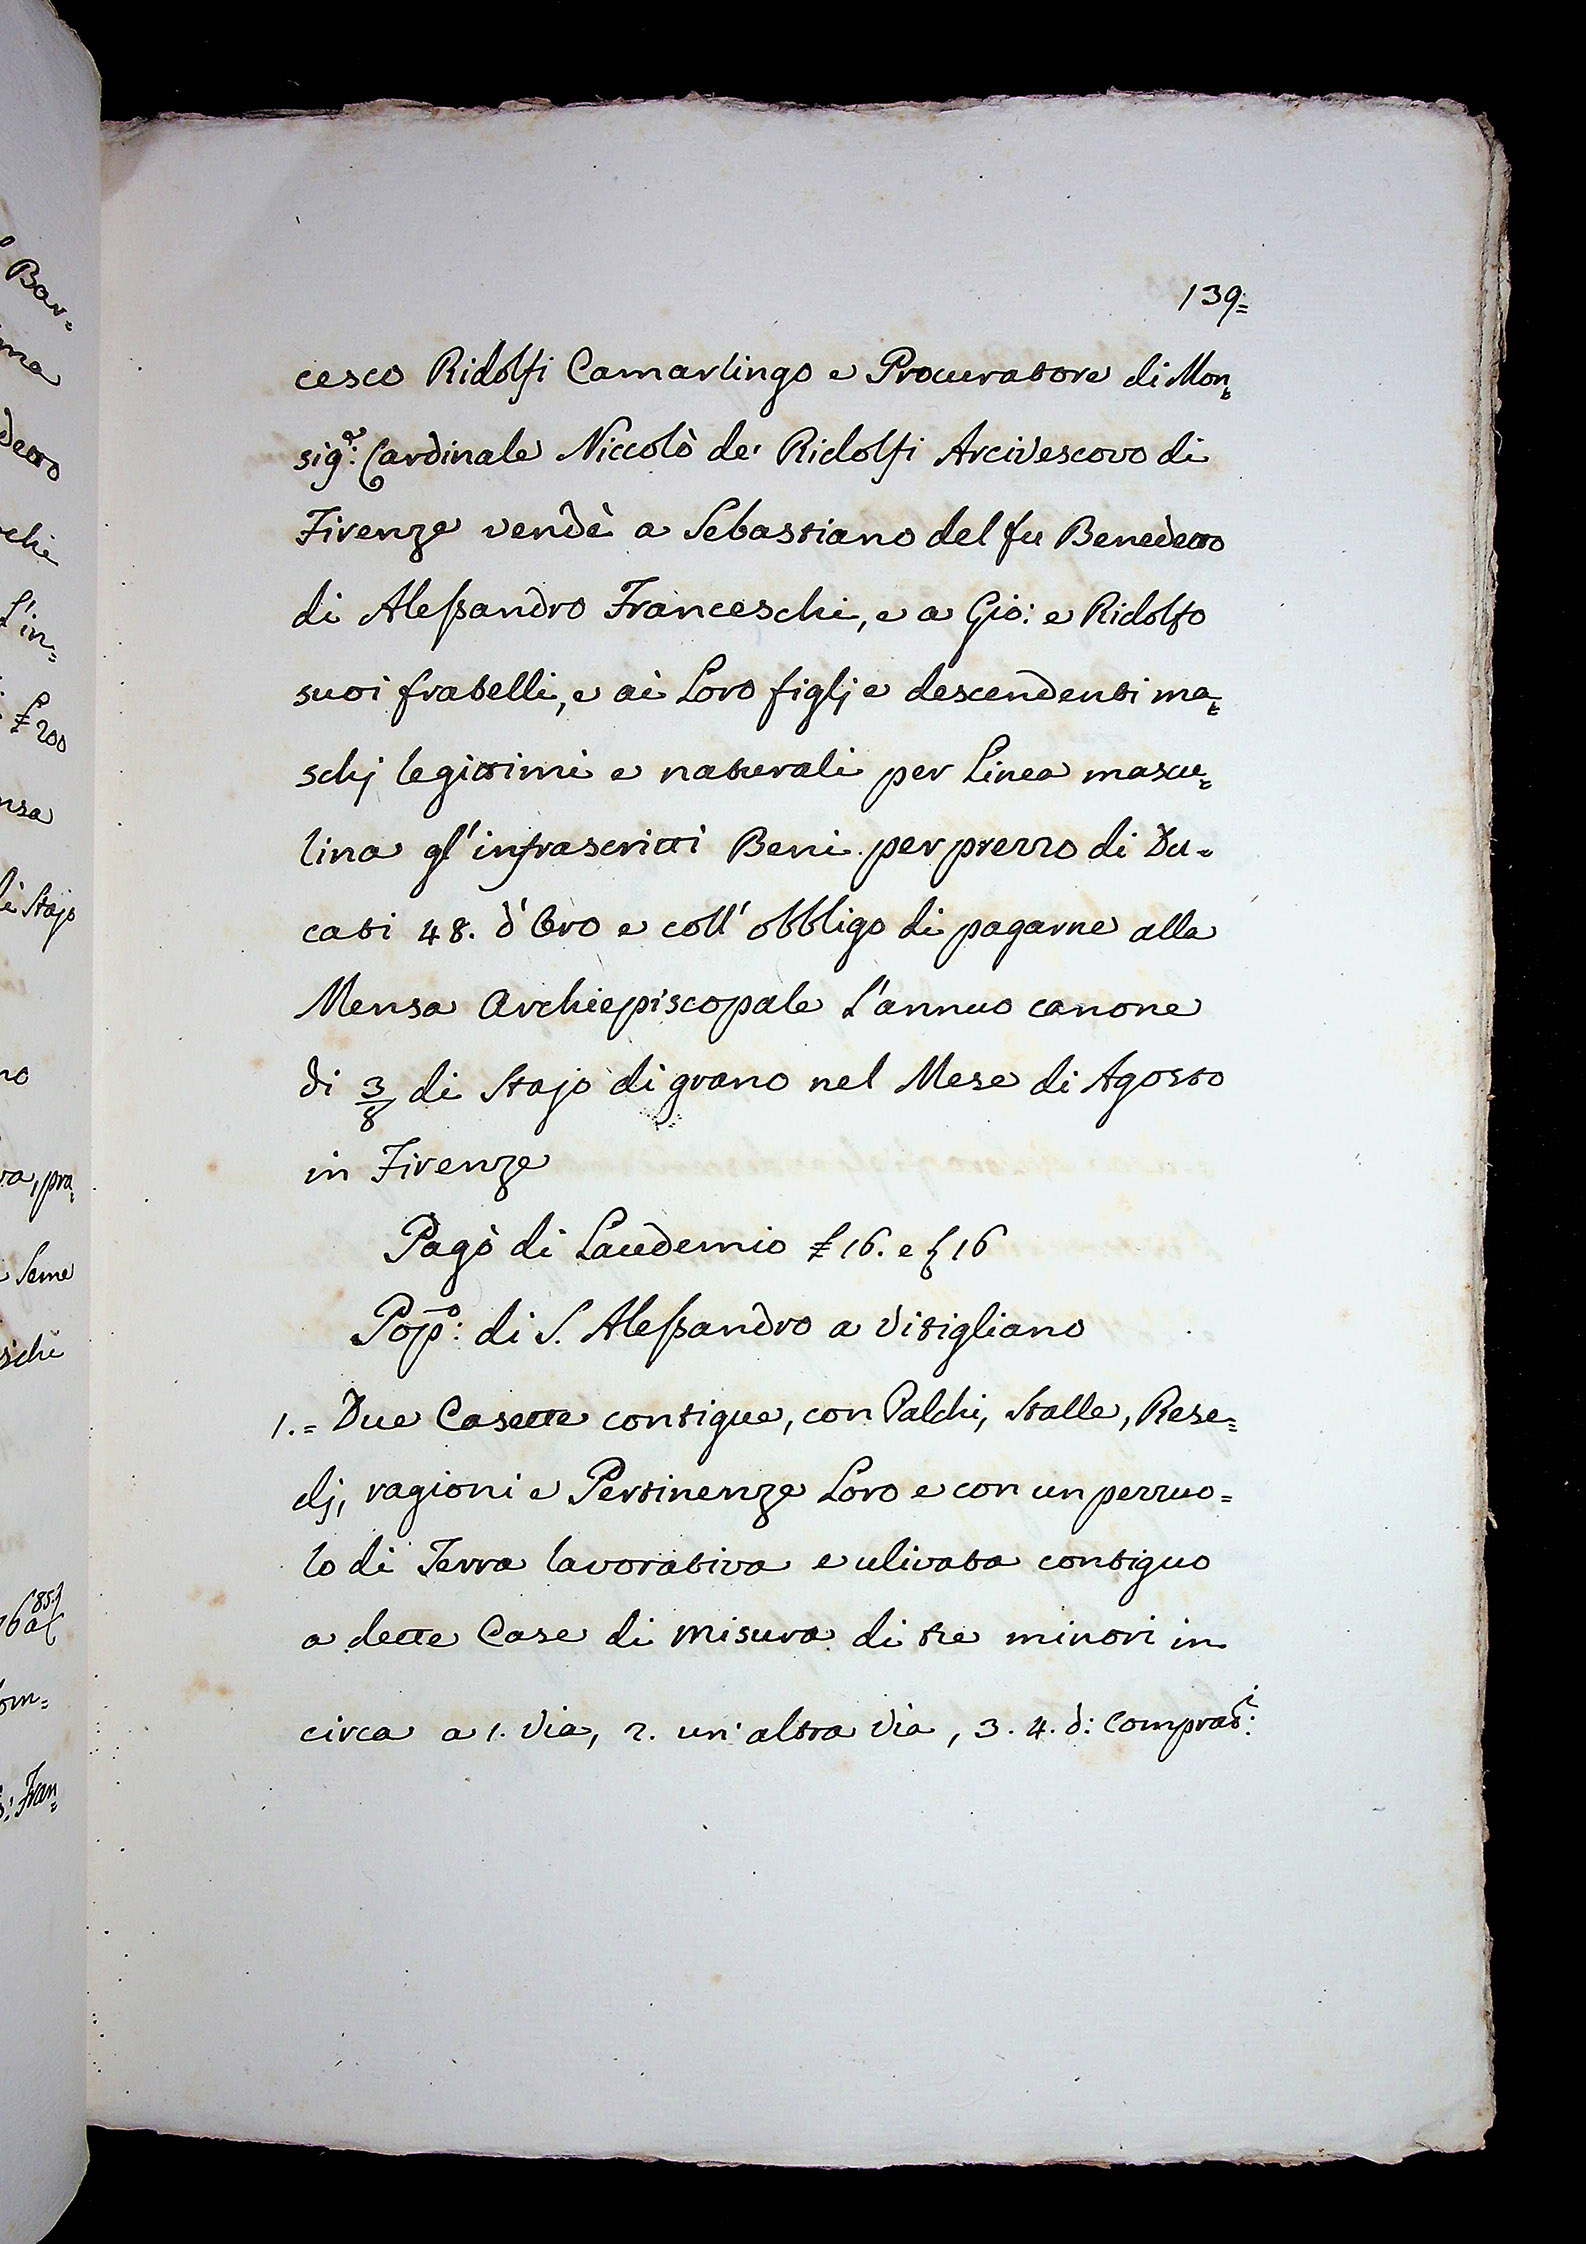 139=
cesco Ridolfi Camarlingo e Procuratore di Mon=
sig.r Cardinale Niccolò de' Ridolfi Arcivescovo di
Firenze vendè a Sebastiano del fu Benedetto
di Alessandro Franceschi, e a Gio: e Ridolfo
suoi fratelli, e ai Loro figlj e descendenti ma=
schj legittimi e naturali per Linea mascu=
lina gl'infrascritti Beni per prezzo di Du=
cati 48. d'Oro e coll'obbligo di pagarne alla
Mensa Archiepiscopale L'annuo canone
di 3/8 di Stajo di grano nel Mese di Agosto
in Firenze
Pagò di Laudemio £ 16. e 16
Pop:o di S. Alessandro a Vitigliano
1.= Due Casette contigue, con Palchi, Stalle, Rese=
dj, ragioni e Pertinenze Loro e con un pezzuo=
lo di Terra lavorativa e ulivata contiguo
a dette Case di misura di tre minori in
circa a 1. Via, 2. un'altra Via, 3. 4. d: Comprat:i
Bar=
ma
detto
chi
L'in=
£ 200
nsa
di Stajo
no
va, pra=
Seme
schi
om=
: Fran=